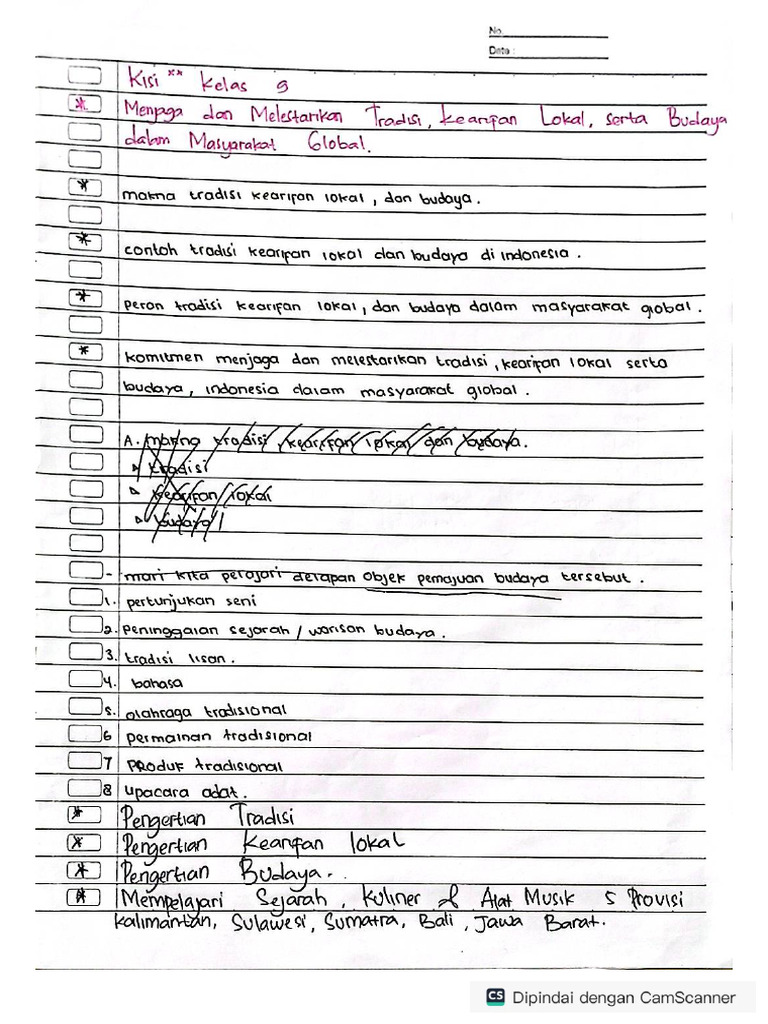 No.
Date :
Kisi ** Kelas 9
* Menjaga dan Melestarikan Tradisi, Kearifan Lokal, serta Budaya
dalam Masyarakat Global.
* makna tradisi kearifan lokal, dan budaya.
* contoh tradisi kearifan lokal dan budaya di indonesia.
* peran tradisi kearifan lokal, dan budaya dalam masyarakat global.
* komitmen menjaga dan melestarikan tradisi, kearifan lokal serta
budaya, indonesia dalam masyarakat global.
A. makna tradisi, kearifan lokal dan budaya.
▹ tradisi
▹ kearifan lokal
▹ budaya
- mari kita perajari derapan objek pemajuan budaya tersebut.
1. pertunjukan seni
2. peninggalan sejarah / warisan budaya.
3. tradisi lisan.
4. bahasa
5. olahraga tradisional
6 permainan tradisional
7 produk tradisional
8 upacara adat.
* Pengertian Tradisi
* Pengertian Kearifan lokal
* Pengertian Budaya..
* Mempelajari Sejarah, Kuliner & Alat Musik 5 Provisi
Kalimantan, Sulawesi, Sumatra, Bali, Jawa Barat.
CS Dipindai dengan CamScanner